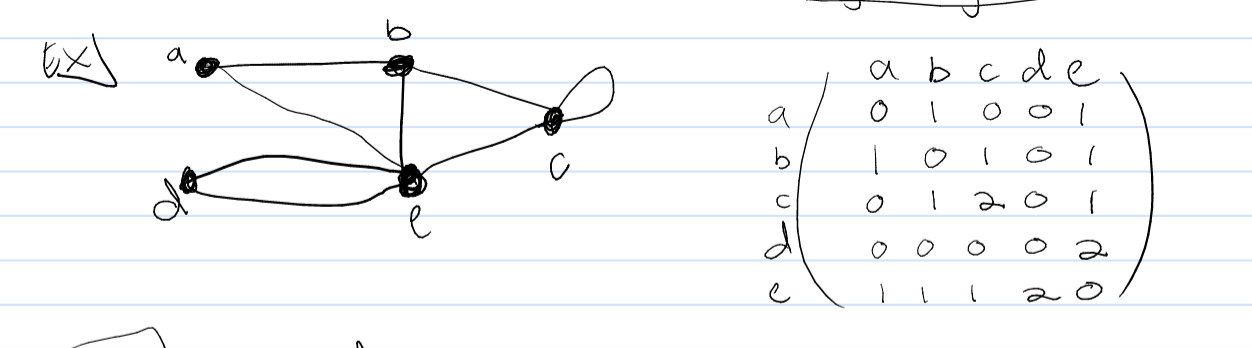 Ex)
a b
c
d
e
a b c d e
a 0 1 0 0 1
b 1 0 1 0 1
c 0 1 2 0 1
d 0 0 0 0 2
e 1 1 1 2 0